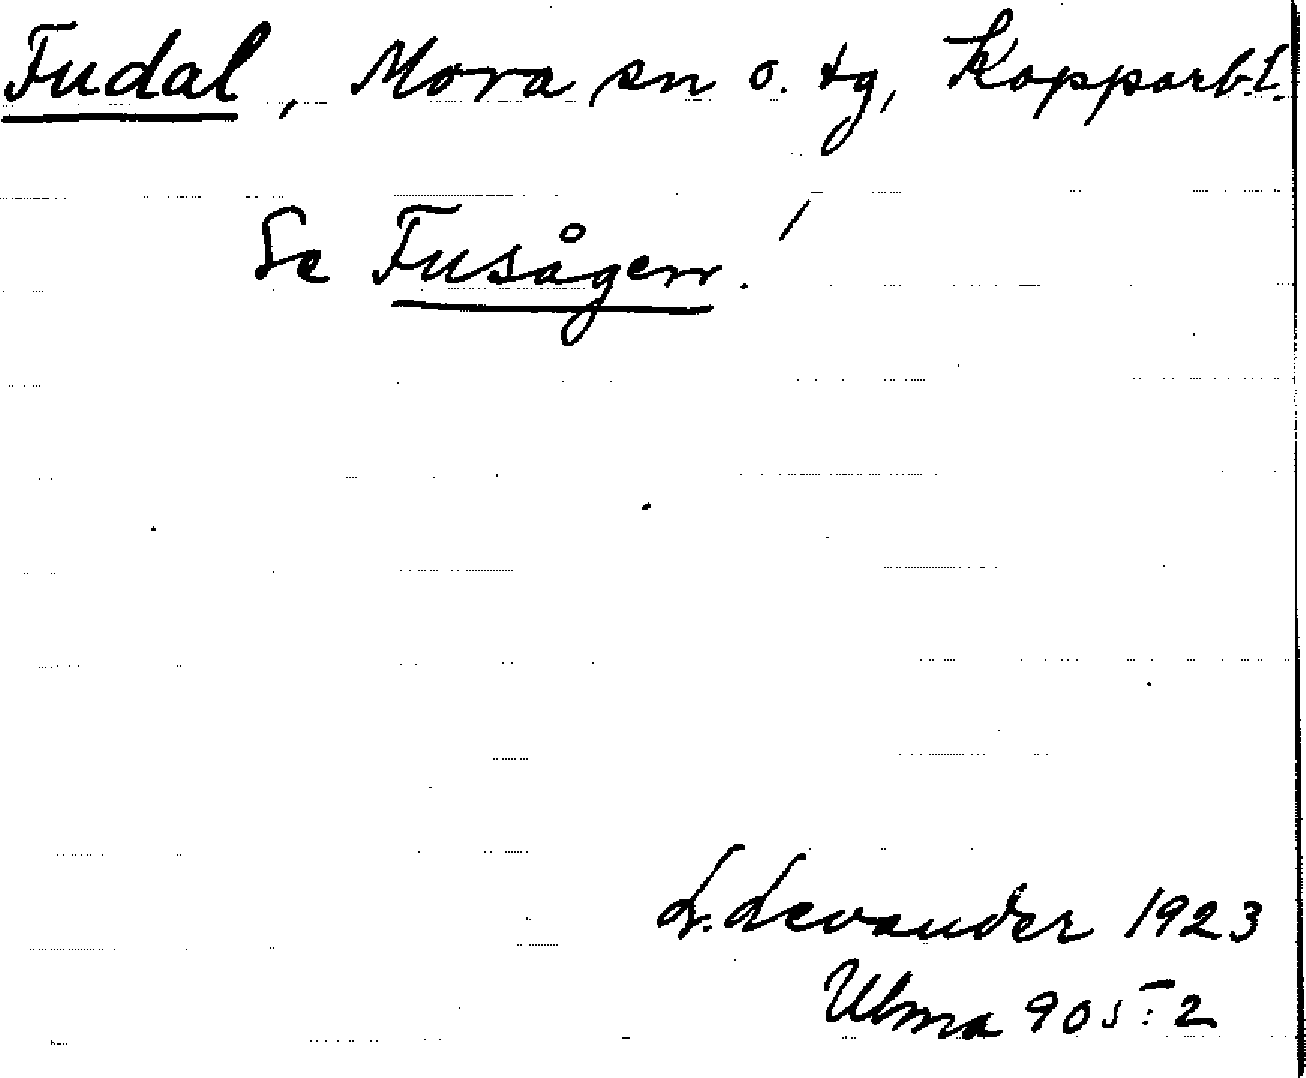 Fudal, Mora sn o. tg, Kopparb. l.
Se Fusågen!
L. Levander 1923
Ulma 905:2